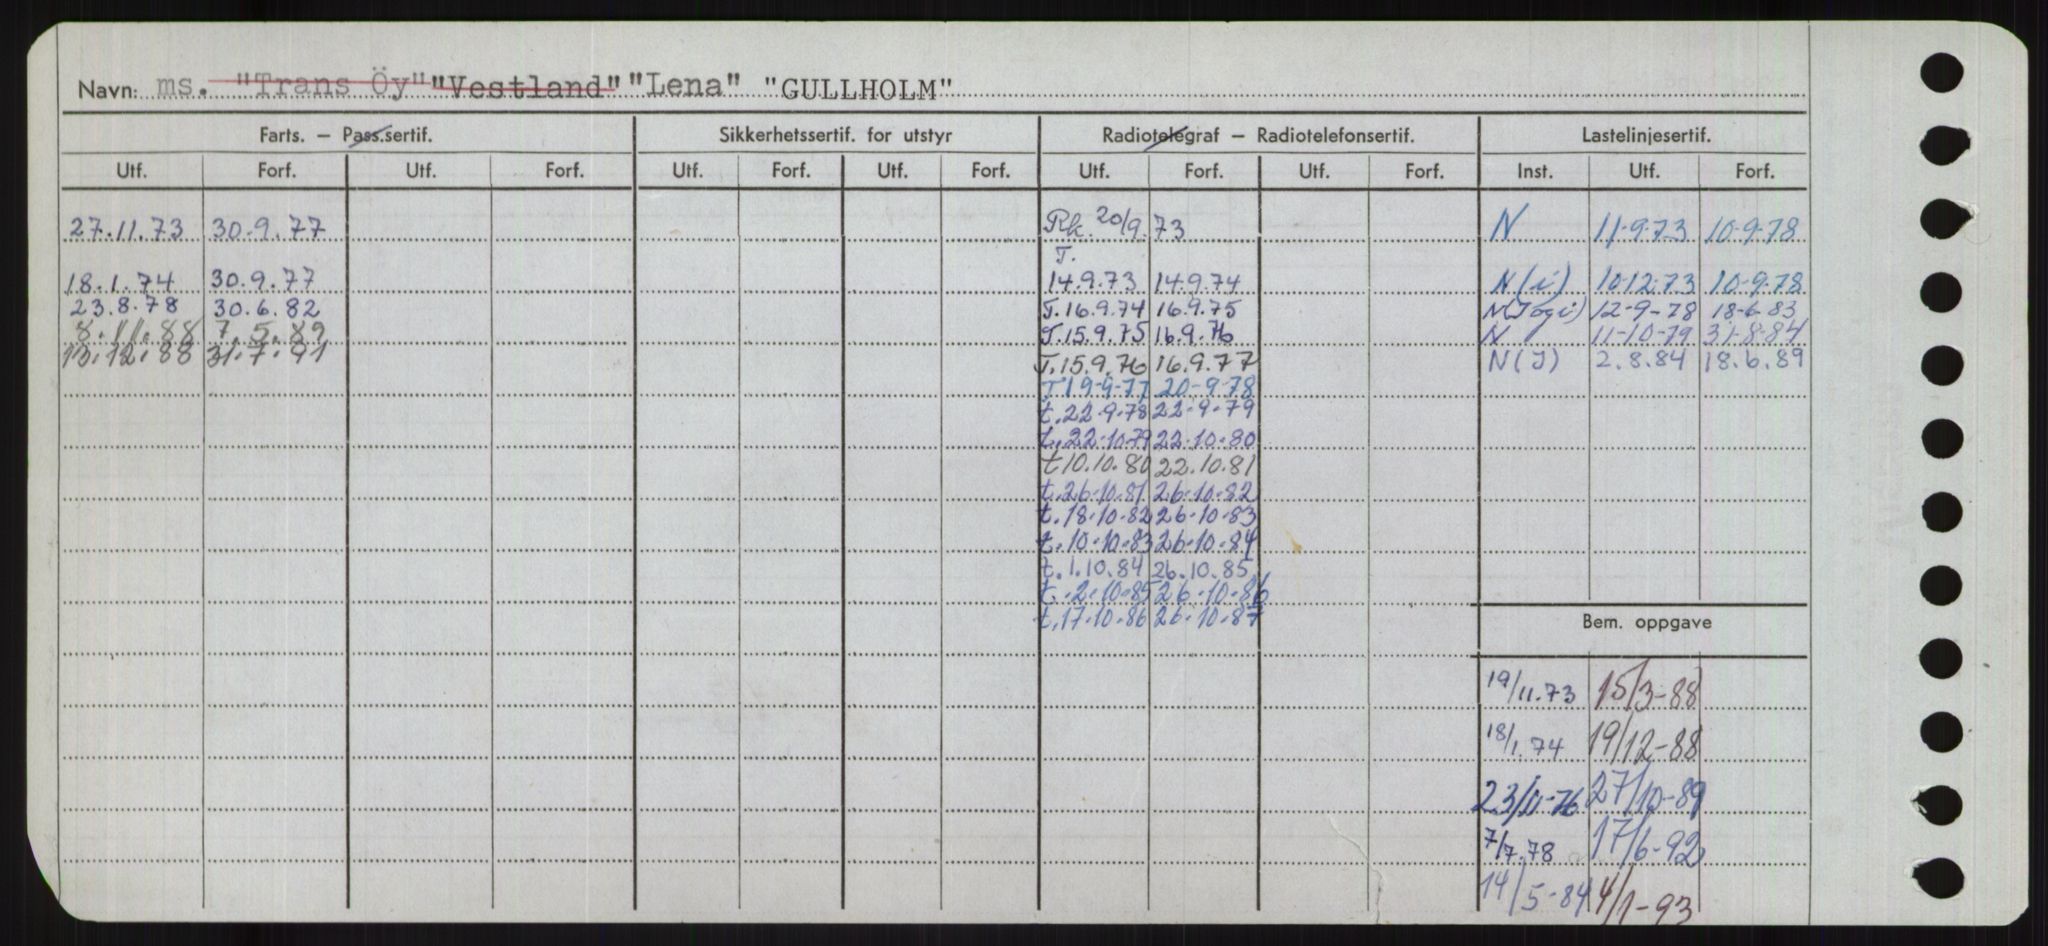 Navn: ms. "Trans Öy" "Vestland" "Lena" "GULLHOLM"
Farts. – Pass.sertif. Sikkerhetssertif. for utstyr Radiotelegraf – Radiotelefonsertif. Lastelinjesertif.
Utf. Forf. Utf. Forf. Utf. Forf. Utf. Forf. Utf. Forf. Utf. Forf. Inst. Utf. Forf.
27.11.73 30.9.77 Rk. 20/9.73 N 11-9-73 10-9-78
T.
18.1.74 30.9.77 14.9.73 14.9.74 N(i) 10-12-73 10-9-78
23.8.78 30.6.82 T.16.9.74 16.9.75 N(J og i) 12-9-78 18-6-83
8.11.88 7.5.89 T.15.9.75 16.9.76 N 11-10-79 31-8-84
13.12.88 31.7.91 T.15.9.76 16.9.77 N(J) 2.8.84 18.6.89
T 19-9-77 20-9-78
t.22.9.78 22-9-79
t.22.10.79 22.10.80
t 10.10.80 22.10.81
t.26.10.81 26.10.82
t.18.10.82 26.10.83
t.10.10.83 26.10.84
t.1.10.84 26.10.85
t.2.10.85 26.10.86
t.17.10.86 26.10.87
Bem. oppgave
19/11.73 15/3-88
18/1.74 19/12-88
23/11-76 27/10-89
7/7.78 17/6-92
14/5-84 4/1-93